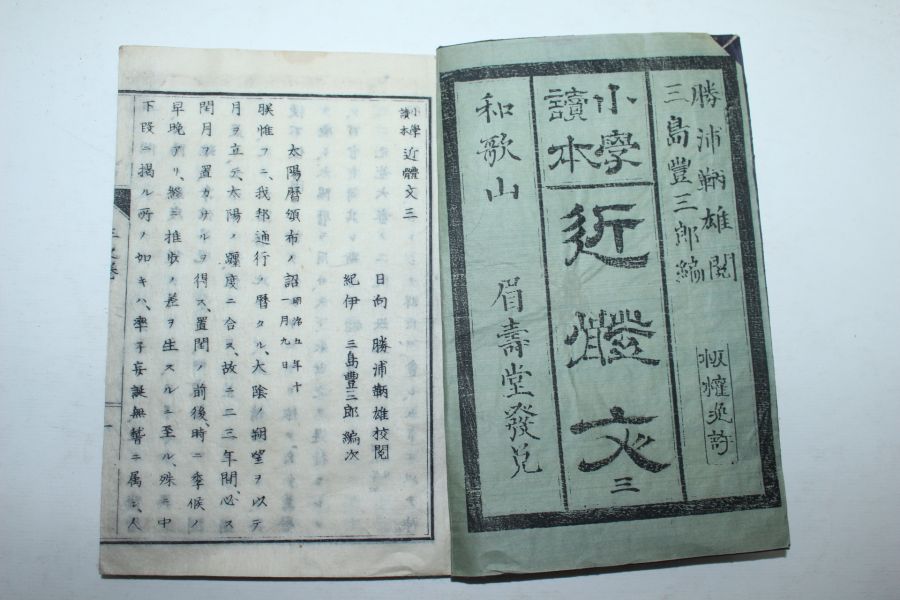 勝浦鞆雄閲
三島豐三郎編
版權免許
小學
讀本
近體文
三
和歌山 眉壽堂發兌
小學
讀本
近體文三
日向 勝浦鞆雄校閲
紀伊 三島豐三郎編次
太陽暦頒布ノ詔 明治五年十
一月九日
朕惟フニ、我邦通行ノ暦タル、太陰ノ朔望ヲ以テ
月ヲ立テ、太陽ノ躔度ニ合ス、故ニ二三年間、必ス
閏月ヲ置カサルヲ得ス、置閏ノ前後、時ニ季候ノ
早晩アリ、終ニ推歩ノ差ヲ生スルニ至ル、殊ニ中
下段ニ掲ル所ノ如キハ、率子妄誕無稽ニ属シ、人